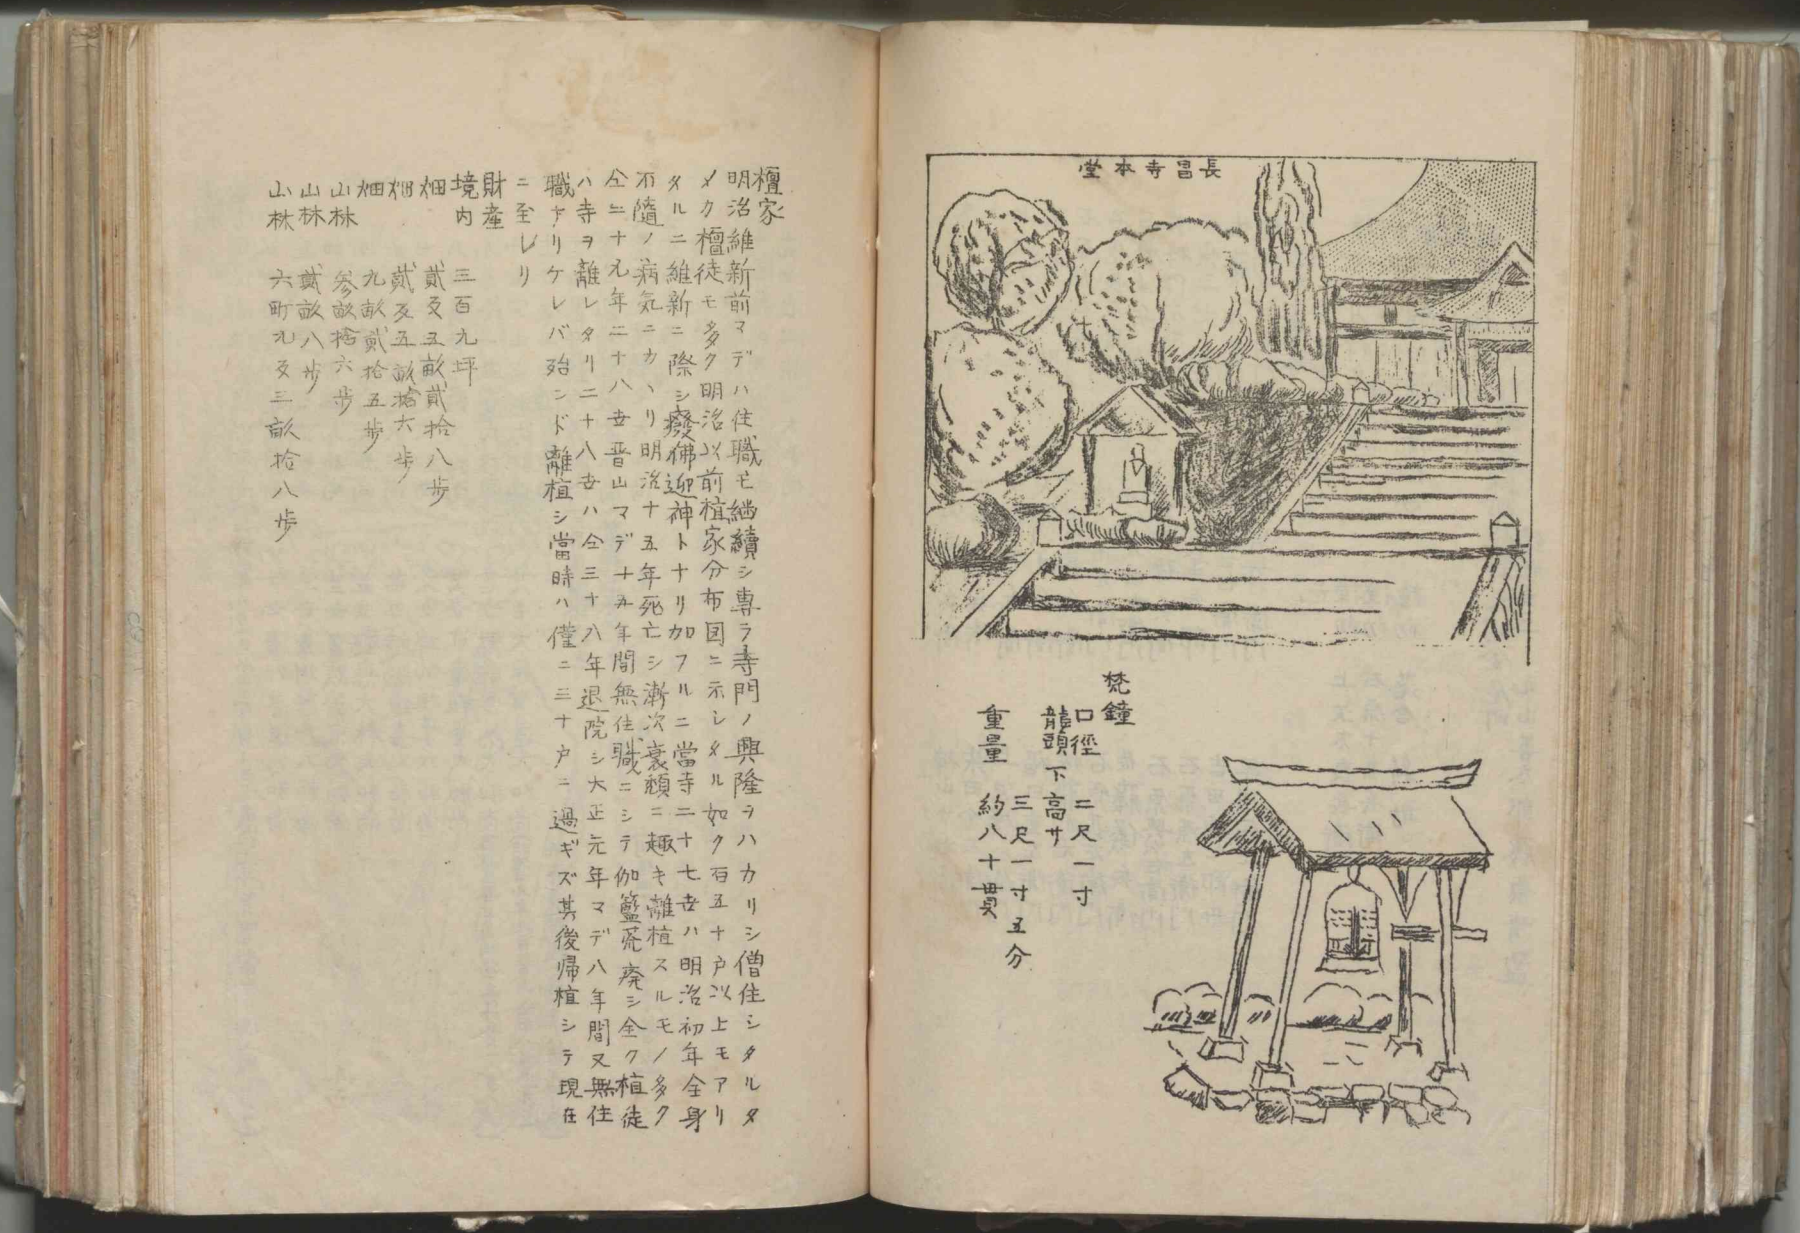 長昌寺本堂
梵鐘
口徑 二尺一寸
龍頭下高サ
三尺一寸五分
重量 約八十貫
檀家
明治維新前マデハ住職モ継續シ専ラ寺門ノ興隆ヲハカリシ僧住シタルタ
メク檀徒モ多ク明治以前檀家分布図ニ示シタル如ク百五十戸以上モアリ
タルニ維新ニ際シ廢佛迎神トナリ加フルニ當寺二十七世ハ明治初年全身
不随ノ病気ニカヽリ明治十五年死亡シ漸次衰頽ニ趣キ離檀スルモノ多ク
仝二十九年二十八世晋山マデ十五年間無住職ニシテ伽籃荒廃シ全ク檀徒
ハ寺ヲ離レタリ二十八世ハ仝三十八年退院シ大正元年マデ八年間又無住
職ナリケレバ殆ンド離檀シ當時ハ僅ニ三十戸ニ過ギズ其後帰檀シテ現在
ニ至レリ
財産
境内 三百九坪
畑 貳反五畝貳拾八歩
畑 貳反五畝拾六歩
畑 九畝貳拾五歩
山林 参畝拾六歩
山林 貳畝八歩
山林 六町九反三畝拾八歩